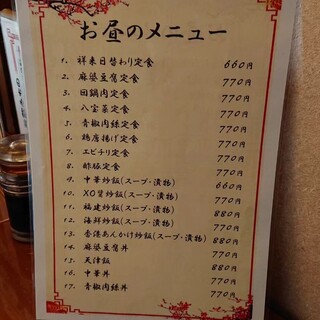 お昼のメニュー
1. 祥来日替わり定食 660円
2. 麻婆豆腐定食 770円
3. 回鍋肉定食 770円
4. 八宝菜定食 770円
5. 青椒肉絲定食 770円
6. 鶏唐揚げ定食 770円
7. エビチリ定食 770円
8. 酢豚定食 770円
9. 中華炒飯(スープ・漬物) 660円
10. XO醤炒飯(スープ・漬物) 770円
11. 福建炒飯(スープ・漬物) 880円
12. 海鮮炒飯(スープ・漬物) 770円
13. 香港あんかけ炒飯(スープ・漬物) 880円
14. 麻婆豆腐丼 770円
15. 天津飯 770円
16. 中華丼 770円
17. 青椒肉絲丼 770円